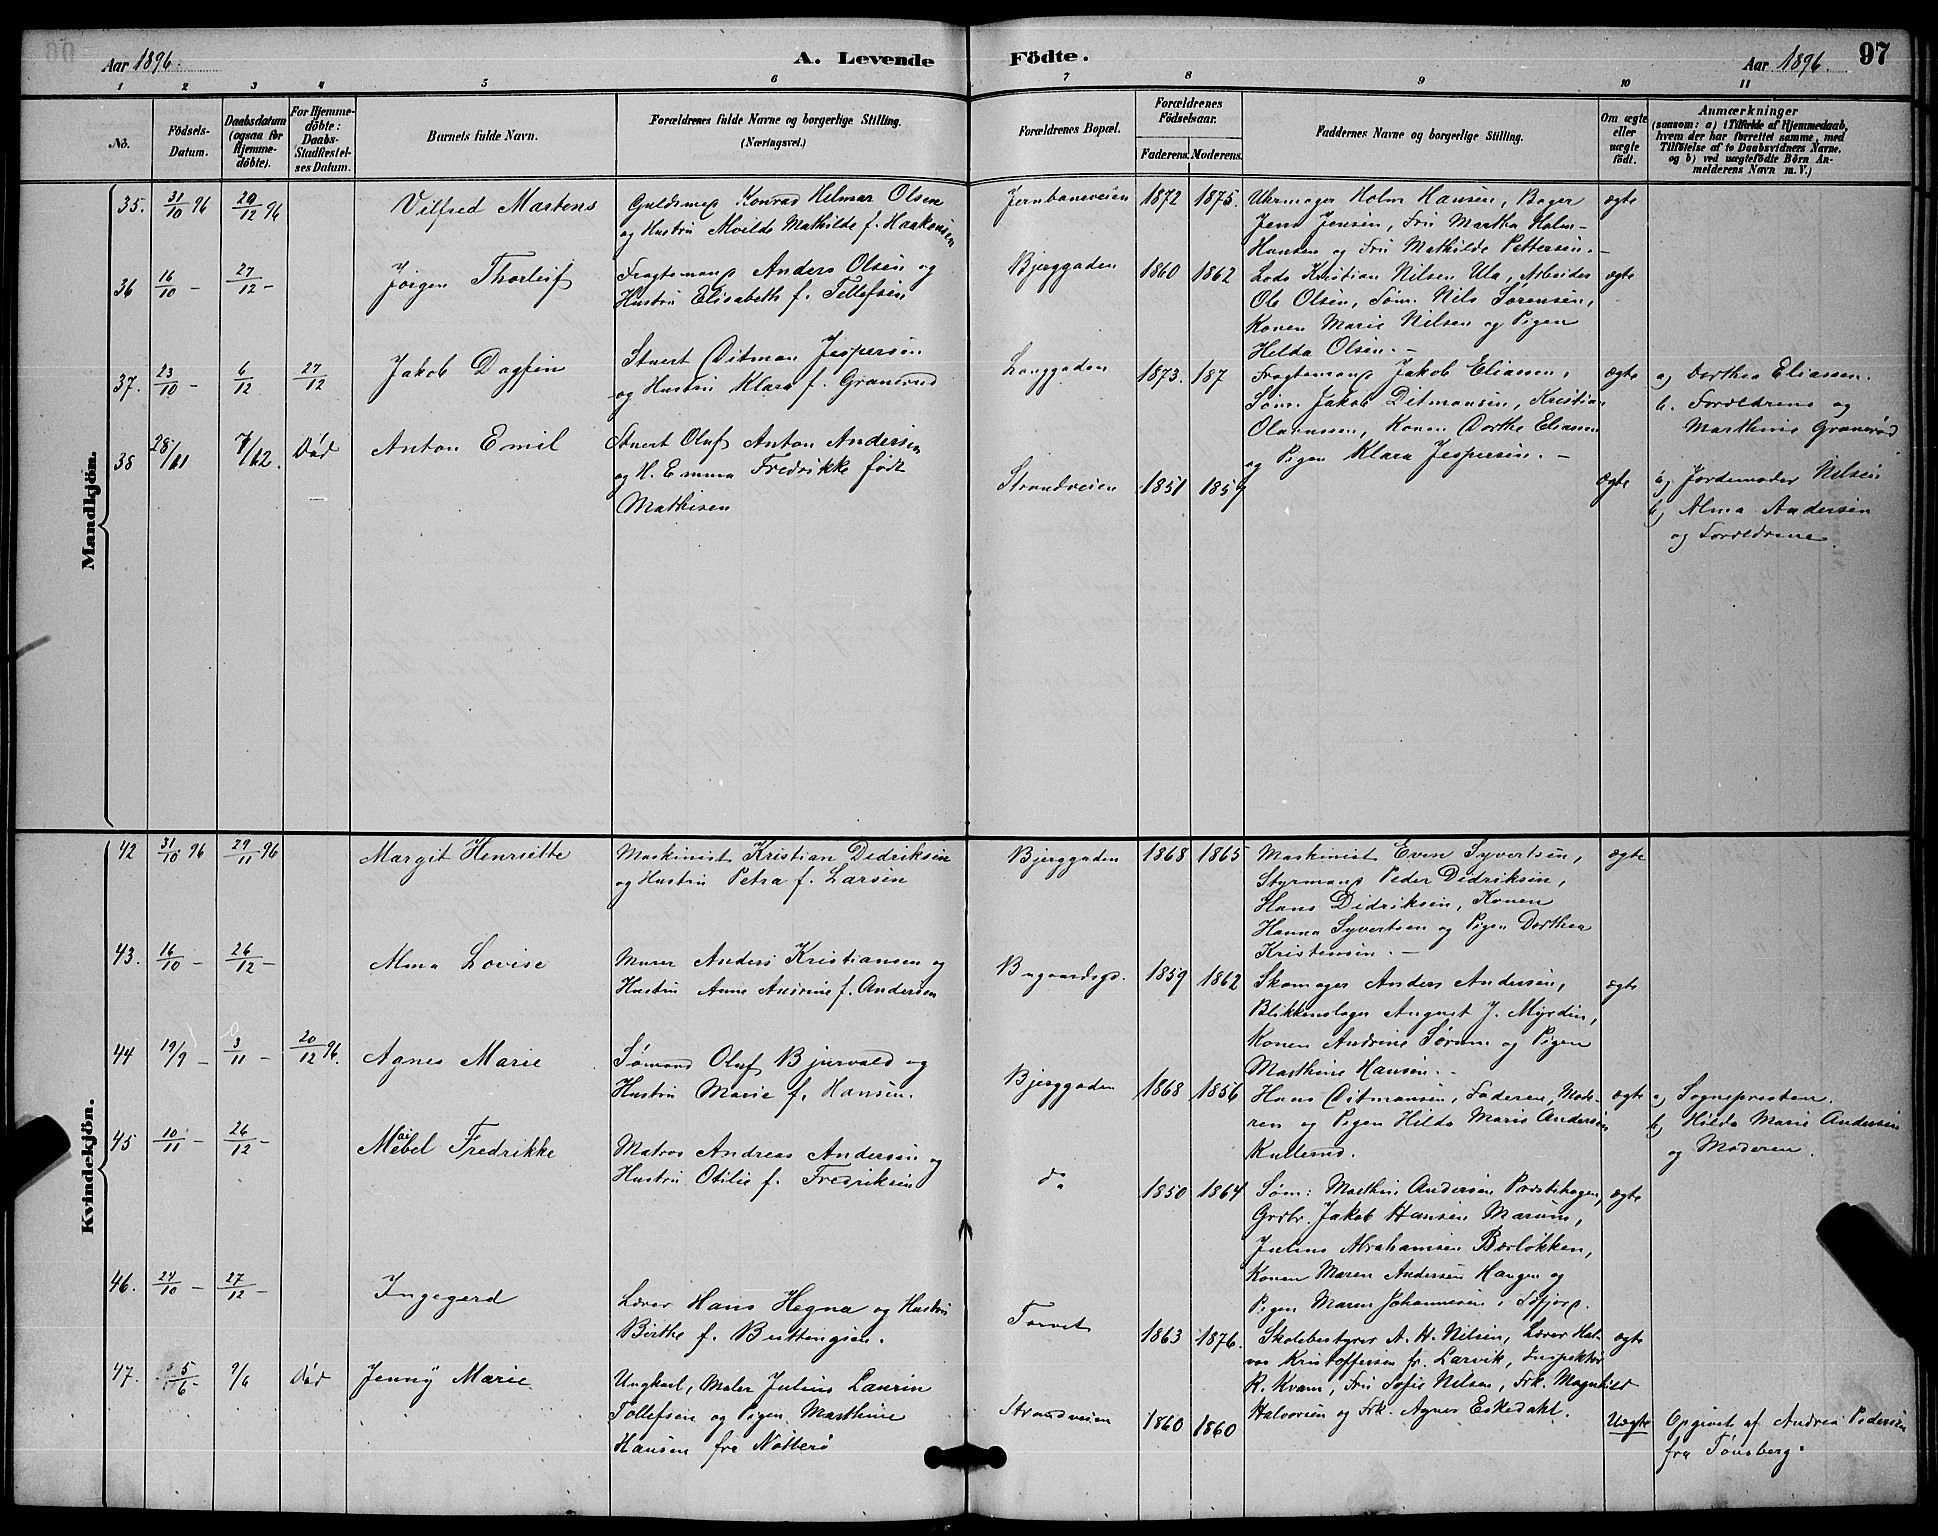 Aar 1896.
A. Levende Födte.
Aar 1896.
97
1 2 3 4 5 6 7 8 9 10 11
No.
Födsels-Datum.
Daabsdatum (ogsaa for Hjemmedöbte).
For Hjemmedöbte: Daabs-Stadfestelses Datum.
Barnets fulde Navn.
Forældrenes fulde Navne og borgerlige Stilling.
(Næringsvei.)
Forældrenes Bopæl.
Forældrenes Födselsaar.
Faderens. Moderens.
Faddernes Navne og borgerlige Stilling.
Om ægte eller uægte födt.
Anmærkninger
(saasom: a) i Tilfælde af Hjemmedaab,
hvem der har forrettet samme, med
Tilföielse af to Daabsvidners Navne,
og b) ved uægtefödte Börn An-
melderens Navn m. V.)
Mandkjön.
35. 31/10 96 20/12 96 Vilfred Martens
Guldsmed Konrad Helmar Olsen
og Hustru Alvilde Mathilde f. Haakonsen
Jernbaneveien 1872 1875.
Uhrmager Holm Hansen, Bager
Jens Jensen, Fru Martha Holm-
Hansen og Fru Mathilde Pettersen.-
ægte
36 16/10 - 27/12 - Jörgen Thorleif
Fragtemand Anders Olsen og
Hustru Elisabeth f. Tellefsen
Bjerggaden 1860 1862
Lods Kristian Nilsen Ula, Arbeider
Ole Olsen, Søm. Nils Sørensen,
Konen Marie Nilsen og Pigen
Helda Olsen.-
ægte
37. 23/10 - 6/12 27/12 Jakob Dagfin
Stuert Ditman Jespersen
og Hustru Klara f. Granerød
Langgaden 1873. 187
Fragtemand Jakob Eliassen,
Søm. Jakob Ditmansen, Kristian
Olavussen, Konen Dorthe Eliassen
og Pigen Klara Jespersen.-
ægte
a) Dorthea Eliassen.
b. Forældrene og
Marthine Granerød
38 28/11 7/12. Død Anton Emil
Stuert Oluf Anton Andersen
og H. Emma Fredrikke født
Mathisen
Strandveien 1851 1859
Ægte
a) Jordemoder Nilsen
b) Alma Andersen
og Forældrene.
Kvindekjön.
42 31/10 96 29/11 96 Margit Henriette
Maskinist Kristian Didriksen
og Hustru Petra f. Larsen
Bjerggaden 1868 1865
Maskinist Even Syvertsen,
Styrmand Peder Didriksen,
Hans Didriksen, Konen
Hanna Syvertsen og Pigen Dorthea
Kristensen.-
ægte
43. 16/10 - 26/12 - Alma Lovise
Murer Anders Kristiansen og
Hustru Anne Andrine f. Andersen
Bugaardsgd. 1859 1862
Skomager Anders Andersen,
Blikkenslager August J. Myrdin,
Konen Andrine Sørum og Pigen
Marthine Hansen.-
ægte
44 19/9 - 3/11 - 20/12 96. Agnes Marie
Sømand Oluf Bjurvald og
Hustru Marie f. Hansen.
Bjerggaden 1868 1856
Hans Ditmansen, Faderen, Mode-
ren og Pigen Hilda Marie Andersen
Kullerud.
ægte
a) Sognepresten.
b) Hilda Marie Andersen
og Moderen.
45 10/11 - 26/12 - Mabel Fredrikke
Matros Andreas Andersen og
Hustru Otilie f. Fredriksen
do 1850 1864
Søm: Mathis Andersen Prestehagen,
Grdbr. Jakob Hansen Marum,
Julius Abrahamsen Bærløkken,
Konen Maren Andersen Haugen og
Pigen Maren Johannesen, Sefjord.
ægte
46. 24/10 - 27/12 - Ingegerd
Lærer Hans Hegna og Hustru
Birthe f. Buttingsen.
Torvet 1863 1876.
Skolebestyrer A. H. Nilsen, Lærer Hal-
vor Kristoffersen fr. Larvik, Inspektør
R. Kvam, Fru Sofie Nilsen, Frk. Magnhild
Halvorsen og Frk. Agnes Eskedahl.
ægte
47. 5/6 - 9/6 Død Jenny Marie
Ungkarl, Maler Julius Laurin
Tollefsen og Pigen Marthine
Hansen fra Nøtterø
Strandveien 1860 1860
Uægte
Opgivet af Andrea Pedersen
fra Tønsberg.